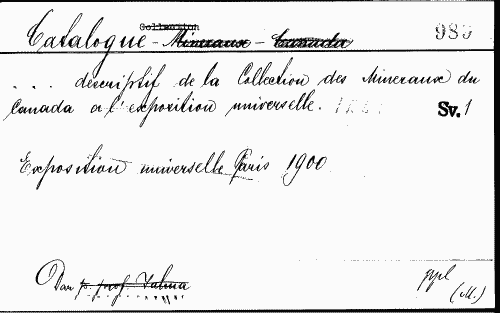 Collection
Catalogue - Mineraux - Canada 985
.... descriptif de la Collection des Mineraux du
Canada a l'exposition universelle. Sv. 1
Exposition universelle Paris 1900
Dar p. prof. Jahna
(M.)